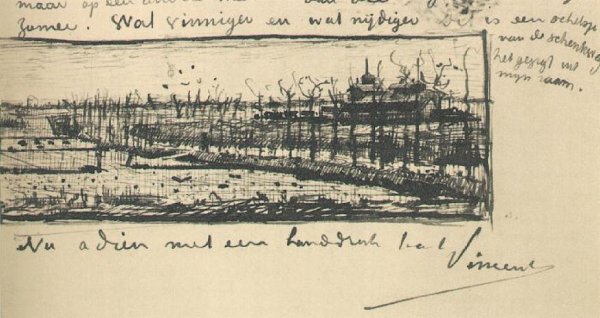 maar op een
zomer. Wat vinniger en wat nijdiger
Dit is een schetsje
van de Schenkweg
het gezigt uit
mijn raam.
Nu adieu met een handdruk t à t
Vincent